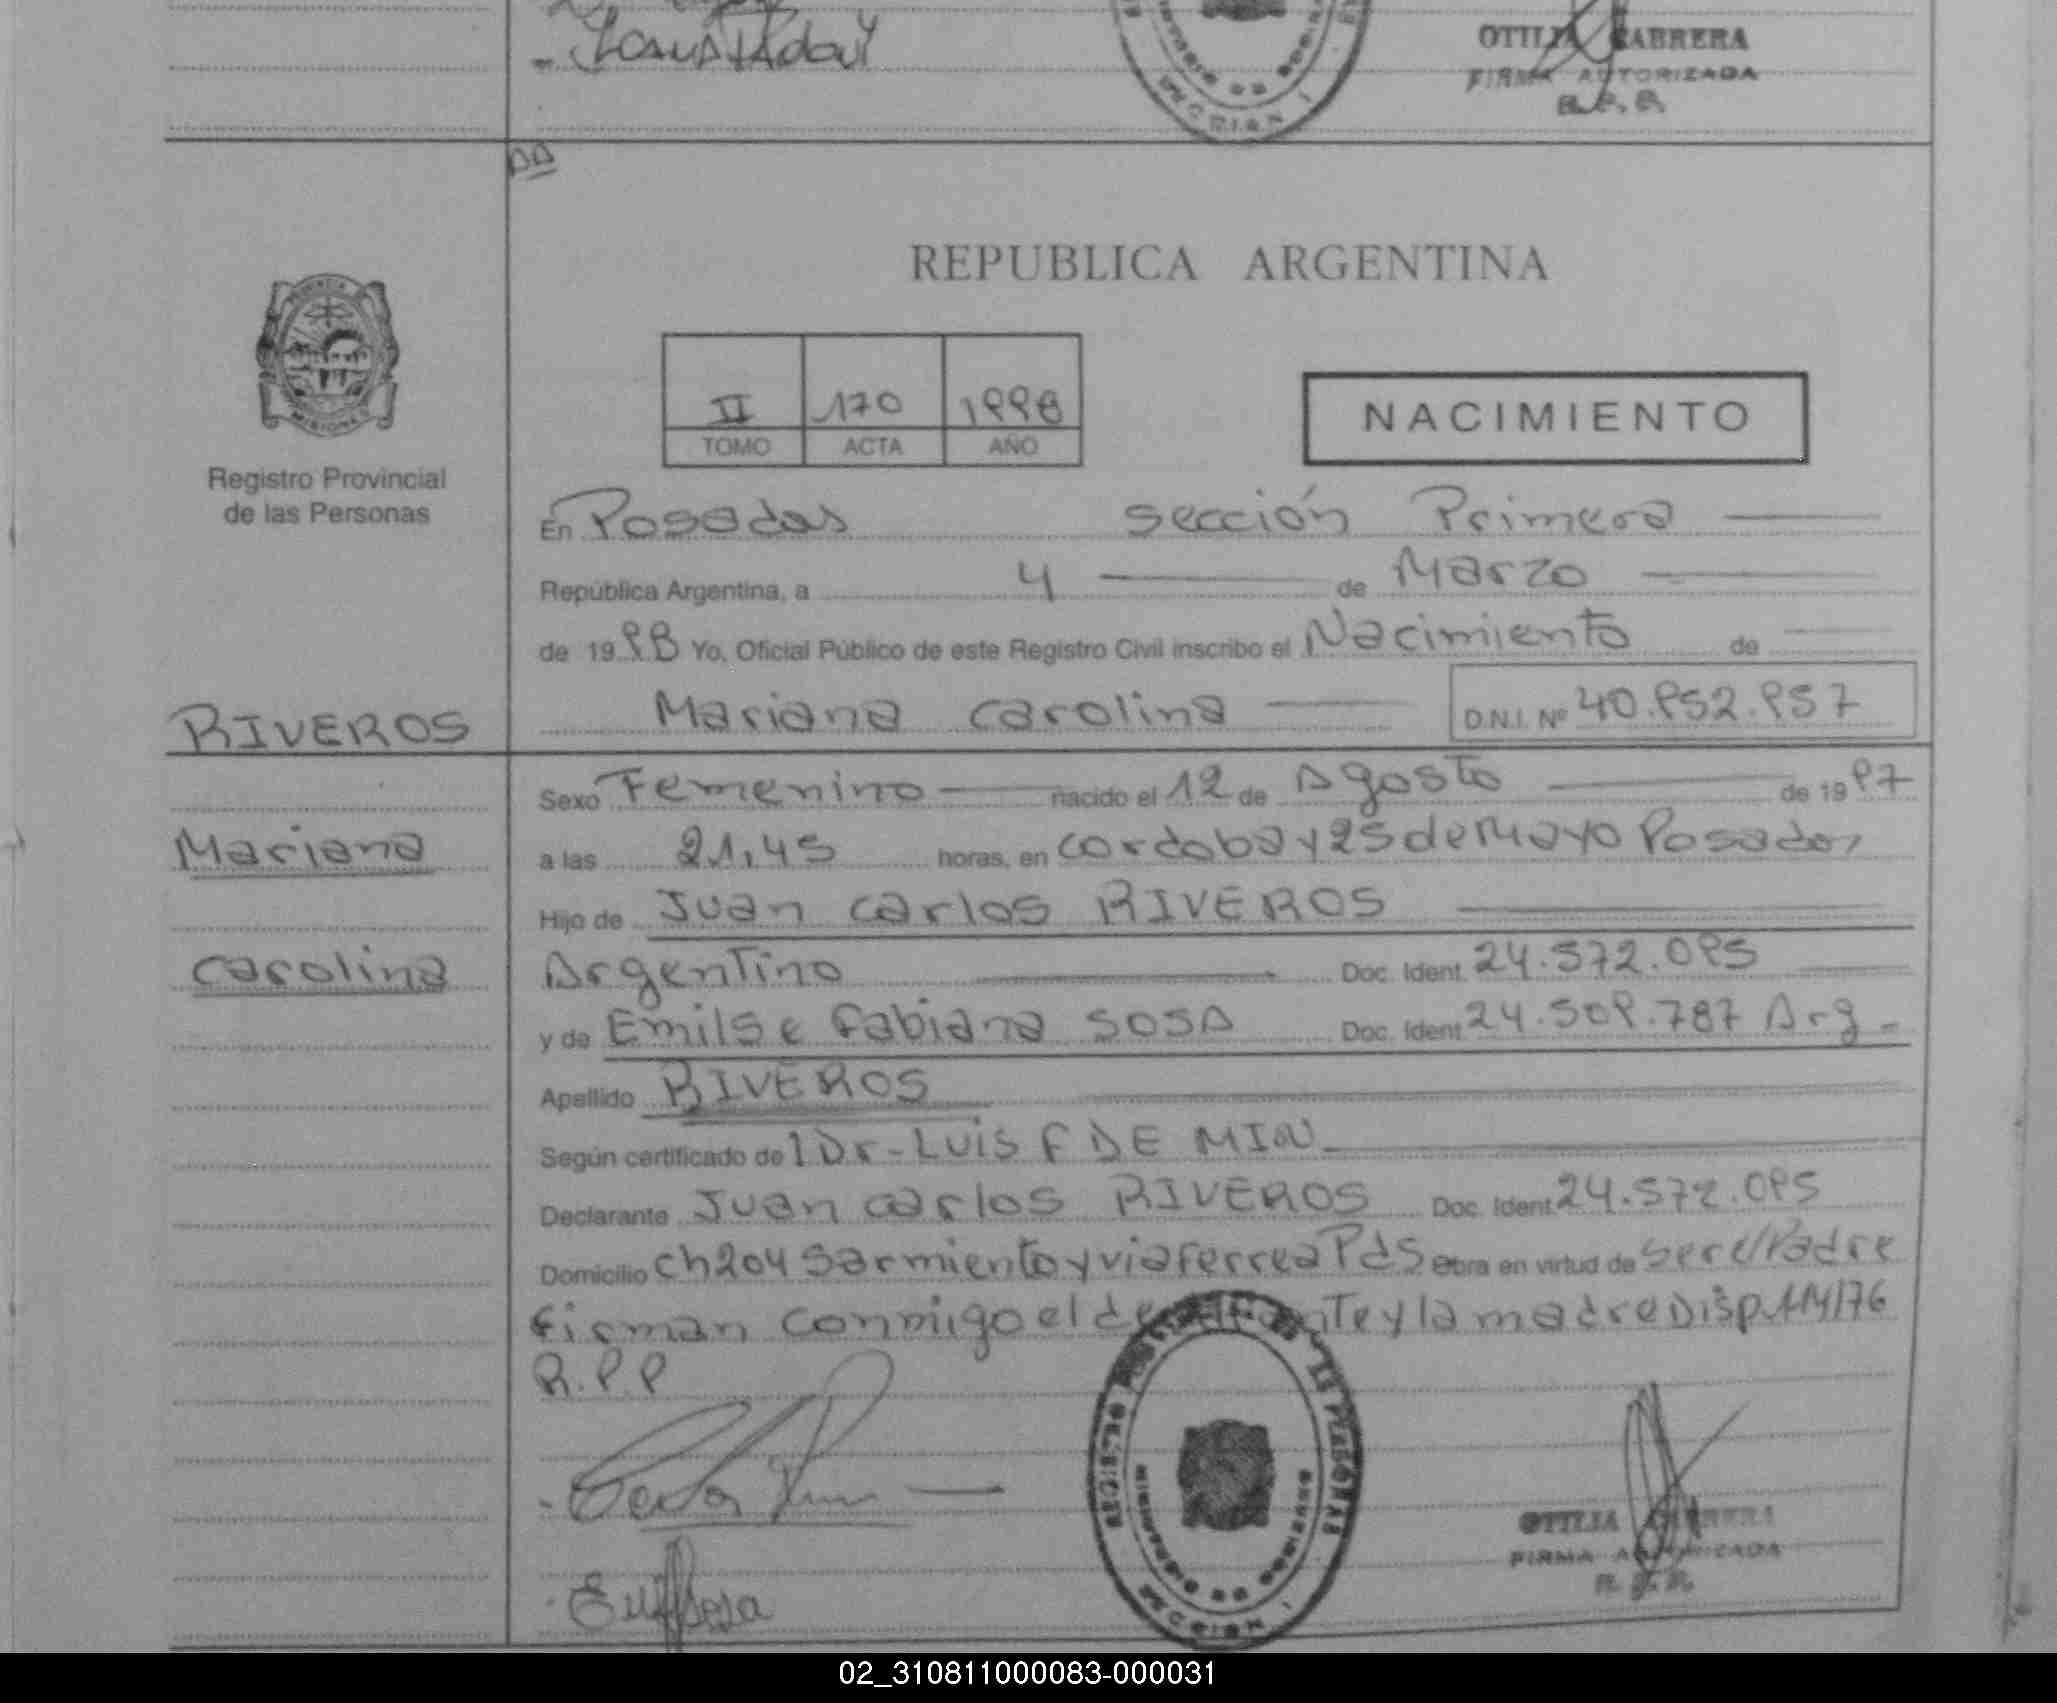 OTILIA CABRERA
FIRMA AUTORIZADA
R.P.P.
SECCION I
REPUBLICA ARGENTINA
PROVINCIA
MISIONES
II 170 1998
TOMO ACTA AÑO
NACIMIENTO
Registro Provincial
de las Personas
En Posadas sección Primera
República Argentina, a 4 de Marzo
de 1998 Yo, Oficial Público de este Registro Civil inscribo el Nacimiento de
RIVEROS
Mariana Carolina D.N.I. Nº 40.952.957
Sexo Femenino nacido el 12 de Agosto de 1997
Mariana
a las 21,45 horas, en Cordoba y 25 de Mayo Posadas
Hijo de Juan Carlos RIVEROS
Carolina
Argentino Doc. Ident. 24.572.095
y de Emilse Fabiana SOSA Doc. Ident. 24.509.787 Arg-
Apellido RIVEROS
Según certificado de l Dr- LUIS F DE MIN
Declarante Juan Carlos RIVEROS Doc. Ident. 24.572.095
Domicilio Ch 204 Sarmiento y via Ferrea Pds Obra en virtud de ser el Padre
Firman conmigo el declarante y la madre Disp. 114/76
R.P.P
REGISTRO PROVINCIAL DE LAS PERSONAS
MINISTERIO DE GOBIERNO
SECCION I
OTILIA CABRERA
FIRMA AUTORIZADA
R.P.P.
02_310811000083-000031